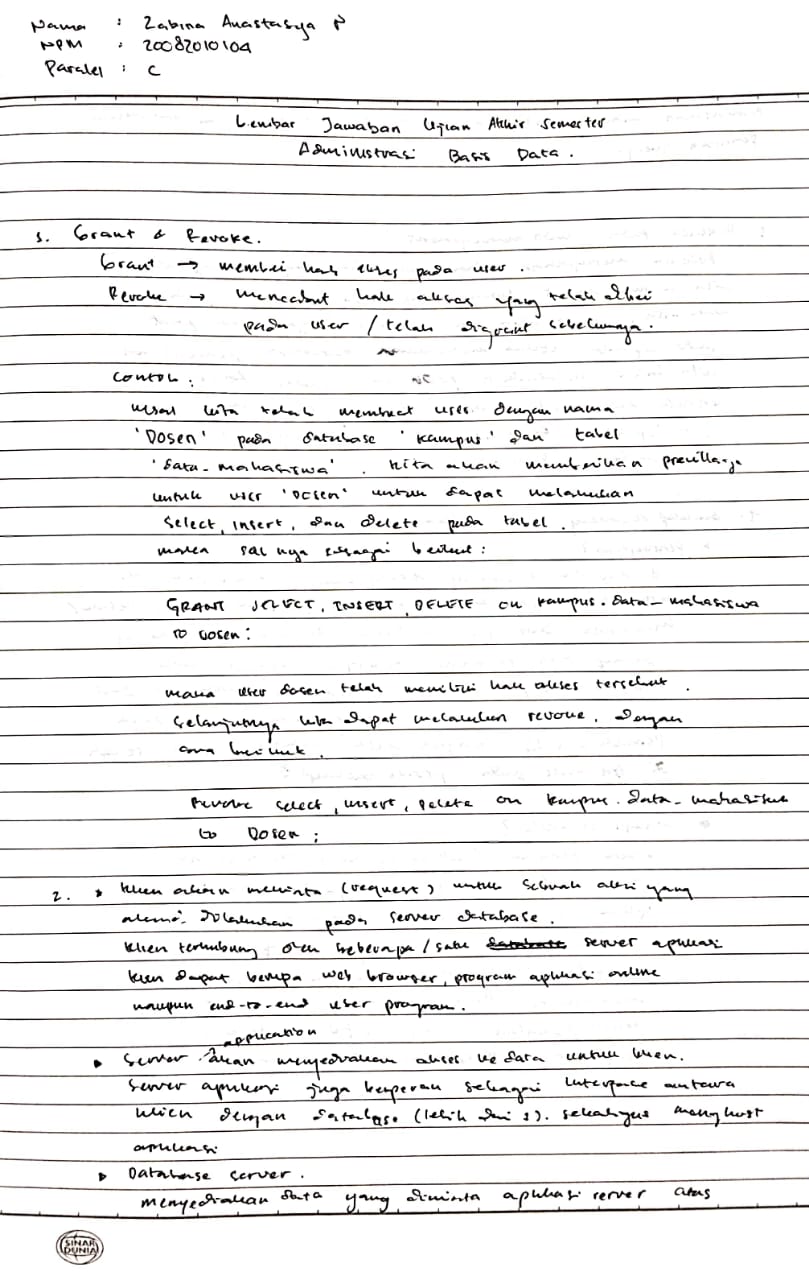 Nama : Zabina Anastasya P
NPM : 20082010104
Paralel : C
Lembar Jawaban Ujian Akhir Semester
Administrasi Basis Data.
1. Grant & Revoke.
Grant → memberi hak akses pada user.
Revoke → mencabut hak akses yang telah diberi
pada user / telah digrant sebelumnya.
Contoh :
misal kita telah membuat user dengan nama
'Dosen' pada database 'kampus' dan tabel
'data-mahasiswa'. Kita akan memberikan previllage
untuk user 'Dosen' untuk dapat melakukan
Select, insert, dan delete pada tabel.
maka sql nya sebagai berikut :
GRANT SELECT, INSERT, DELETE on kampus.data-mahasiswa
to Dosen;
maka user dosen telah memiliki hak akses tersebut.
Selanjutnya kita dapat melakukan revoke, dengan
cara berikut.
Revoke select, insert, delete on kampus.data-mahasiswa
to Dosen;
2. klien akan meminta (request) untuk sebuah aksi yang
dilakukan pada server database.
klien terhubung oleh beberapa / satu server aplikasi
klien dapat berupa web browser, program aplikasi online
maupun end-to-end user program.
Server application akan menyediakan akses ke data untuk klien.
Server aplikasi juga berperan sebagai interface antara
klien dengan database (lebih dari 1). sekaligus menghost
aplikasi
Database server.
menyediakan data yang diminta aplikasi server atas
SINAR
DUNIA